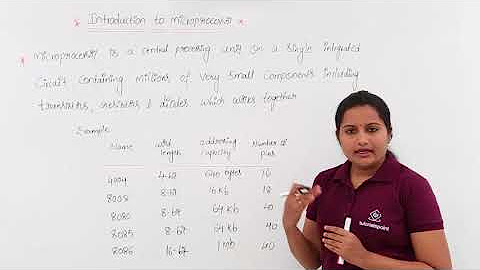 * Introduction to microprocessor *
* microprocessor is a central processing unit on a single integrated
circuit containing millions of very small components including
transistors, resistors & diodes which works together
Example
Name word length addressing capacity Number of pins
4004 4-bit 640 bytes 16
8008 8-bit 16 Kb 18
8080 8-bit 64 Kb 40
8085 8-bit 64 Kb 40
8086 16-bit 1 mb 40
tutorialspoint